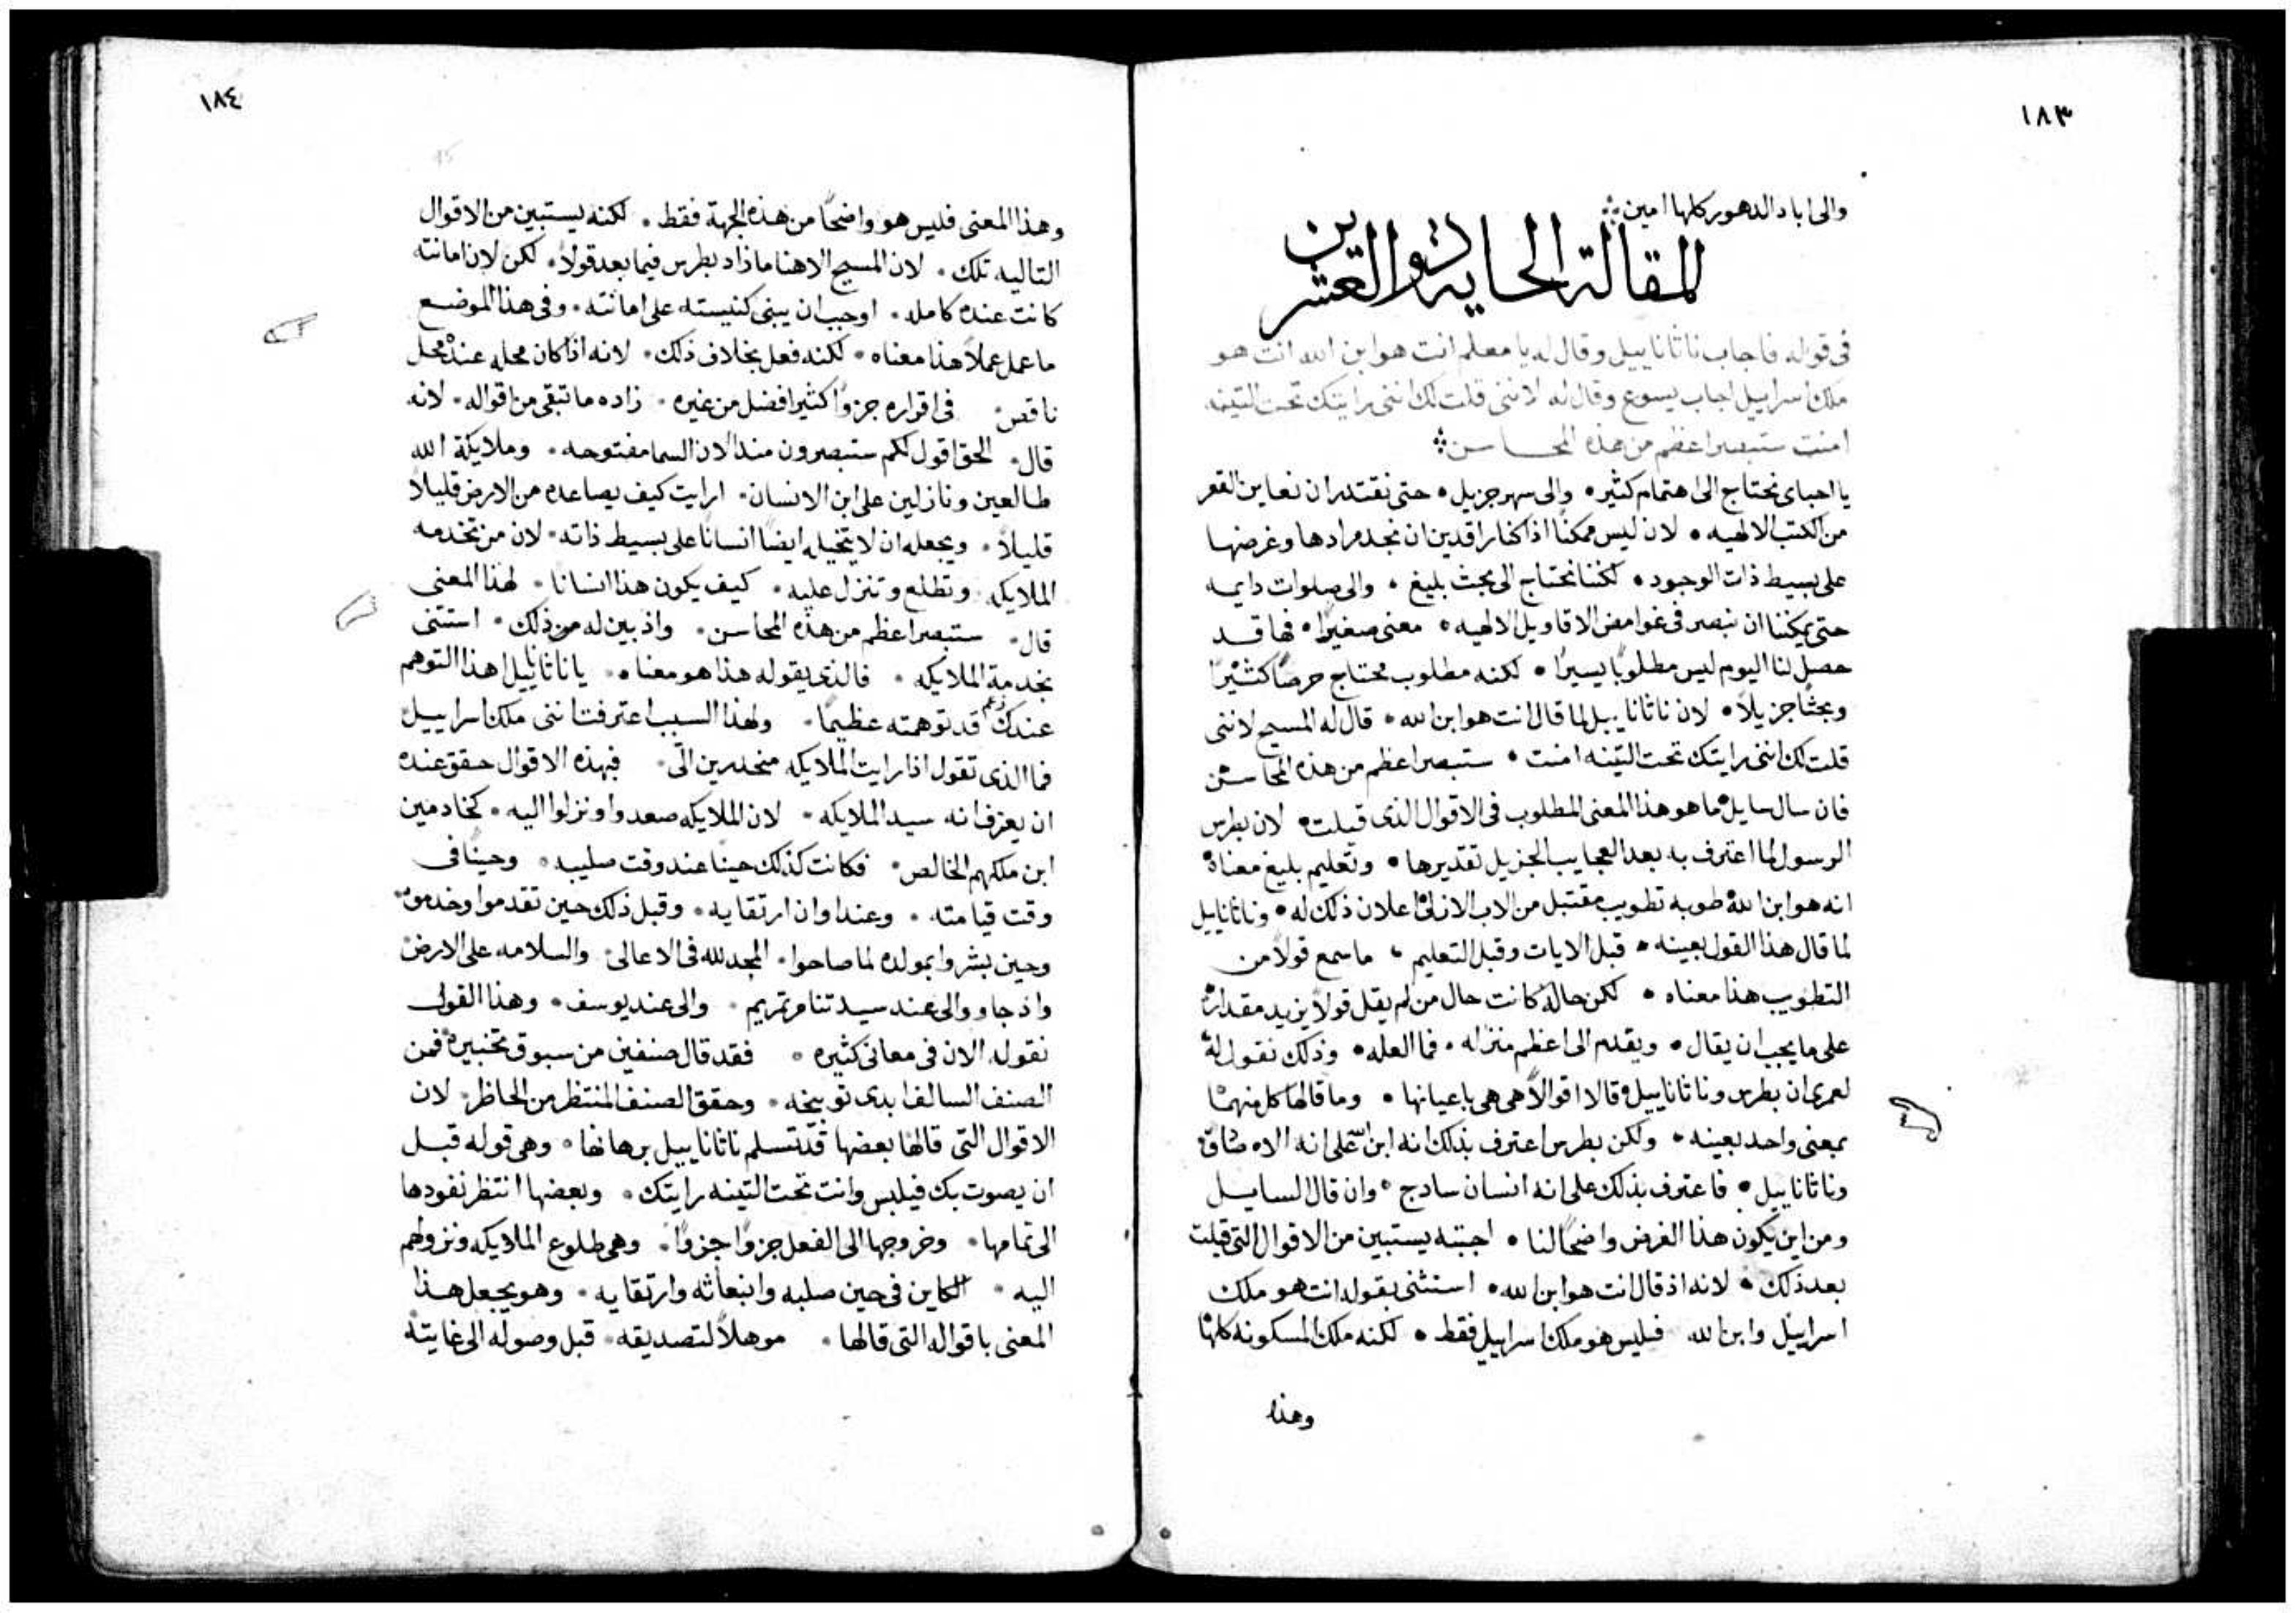 ١٨٣
والى اباد الدهور كلها امين
المقالة الحادية والعشرين
فى قوله فاجاب ناثاناييل وقال له يا معلم انت هو ابن الله انت هو
ملك اسراييل اجاب يسوع وقال له لاننى قلت لك اننى رايتك تحت التينه
امنت ستبصر اعظم من هذه المحاسن
يا احباى نحتاج الى اهتمام كثير • والى سهر جزيل • حتى نقتدر ان نعاين القعر
من الكتب الالهيه • لان ليس ممكنًا اذا كنا راقدين ان نجد مرادها وغرضها
على بسيط ذات الوجود • لكننا نحتاج الى بحث بليغ • والى صلوات دايمه
حتى يمكننا ان نبصر فى غوامض الاقاويل الالهيه • معنى صغيرًا • فها قد
حصل لنا اليوم ليس مطلوبًا يسيرًا • لكنه مطلوب محتاج حرصًا كثيرًا
وبحثًا جزيلًا • لان ناثاناييل لما قال انت هو ابن الله • قال له المسيح لاننى
قلت لك اننى رايتك تحت التينه امنت • ستبصر اعظم من هذه المحاسن
فان سال سايل ما هو هذا المعنى المطلوب فى الاقوال الذى قيلت • لان بطرس
الرسول لما اعترف به بعد العجايب الجزيل تقديرها • وتعليم بليغ معناه
انه هو ابن الله طوبه تطويب مقتبل من الاب الازلى اعلان ذلك له • وناثاناييل
لما قال هذا القول بعينه • قبل الايات وقبل التعليم • ما سمع قولًا من
التطويب هذا معناه • لكن حاله كانت حال من لم يقل قولًا يزيد مقداره
على ما يجب ان يقال • ويقدم الى اعظم منزله • فما العله • وذلك نقول له
لعمرى ان بطرس وناثاناييل قالا اقوالًا هى هى باعيانها • وما قالها كل منهما
بمعنى واحد بعينه • ولكن بطرس اعترف بذلك انه ابن الله على انه الاه صادق
وناثاناييل • فاعترف بذلك على انه انسان سادج • وان قال السايل
ومن اين يكون هذا الغرض واضحًا لنا • اجبته يستبين من الاقوال التى قيلت
بعد ذلك • لانه اذ قال انت هو ابن الله • استثنى بقوله انت هو ملك
اسراييل وابن الله فليس هو ملك اسراييل فقط • لكنه ملك المسكونه كلها
وهذا
١٨٤
وهذا المعنى فليس هو واضحًا من هذه الجهة فقط • لكنه يستبين من الاقوال
التاليه تلك • لان المسيح الاهنا ما زاد بطرس فيما بعد قولًا • لكن لان امانته
كانت عنده كامله • اوجب ان يبنى كنيسته على امانته • وفى هذا الموضع
ما عمل عملًا هذا معناه • لكنه فعل بخلاف ذلك • لانه اذ كان محله عنده محل
ناقص فى اقراره جزوًا كثيرا افضل من غيره • زاده ما تبقى من اقواله • لانه
قال • الحق اقول لكم ستبصرون منذ الان السما مفتوحه • وملايكة الله
طالعين ونازلين على ابن الانسان • ارايت كيف يصاعده من الارض قليلًا
قليلًا • ويجعله ان لا يتخيله ايضًا انسانا على بسيط ذاته • لان من تخدمه
الملايكه وتطلع وتنزل عليه • كيف يكون هذا انسانا • لهذا المعنى
قال • ستبصر اعظم من هذه المحاسن • واذ بين له من ذلك • استثنى
بخدمة الملايكه • فالذى يقوله هذا هو معناه • يا ناثاناييل هذا التوهم
عندك قد توهمته عظيمًا • ولهذا السبب اعترفت اننى ملك اسراييل
فما الذى تقول اذا رايت الملايكه منحدرين الى • فبهذه الاقوال حقق عنده
ان يعرف انه سيد الملايكه • لان الملايكه صعدوا ونزلوا اليه • كخادمين
ابن ملكهم الخالص • فكانت كذلك حينًا عند وقت صليبه • وحينًا فى
وقت قيامته • وعند اوان ارتقايه • وقبل ذلك حين تقدموا وخدموه
وحين بشروا بمولده لما صاحوا • المجد لله فى الاعالى والسلامه على الارض
واذ جاوو الى عند سيدتنا مرتمريم • والى عند يوسف • وهذا القول
نقوله الان فى معانى كثيره • فقد قال صنفين من سبوق تخبيره فمن
الصنف السالف ابدى توبيخه • وحقق الصنف المنتظر من الحاظر • لان
الاقوال التى قالها بعضها قد تسلم ناثاناييل برهانها • وهى قوله قبل
ان يصوت بك فيلبس وانت تحت التينه رايتك • وبعضها انتظر نفودها
الى تمامها • وخروجها الى الفعل جزوًا جزوًا • وهى طلوع الملايكه ونزولهم
اليه • الكاين فى حين صلبه وانبعاثه وارتقايه • وهو يجعل هذا
المعنى باقواله التى قالها • موهلًا لتصديقه • قبل وصوله الى غايته